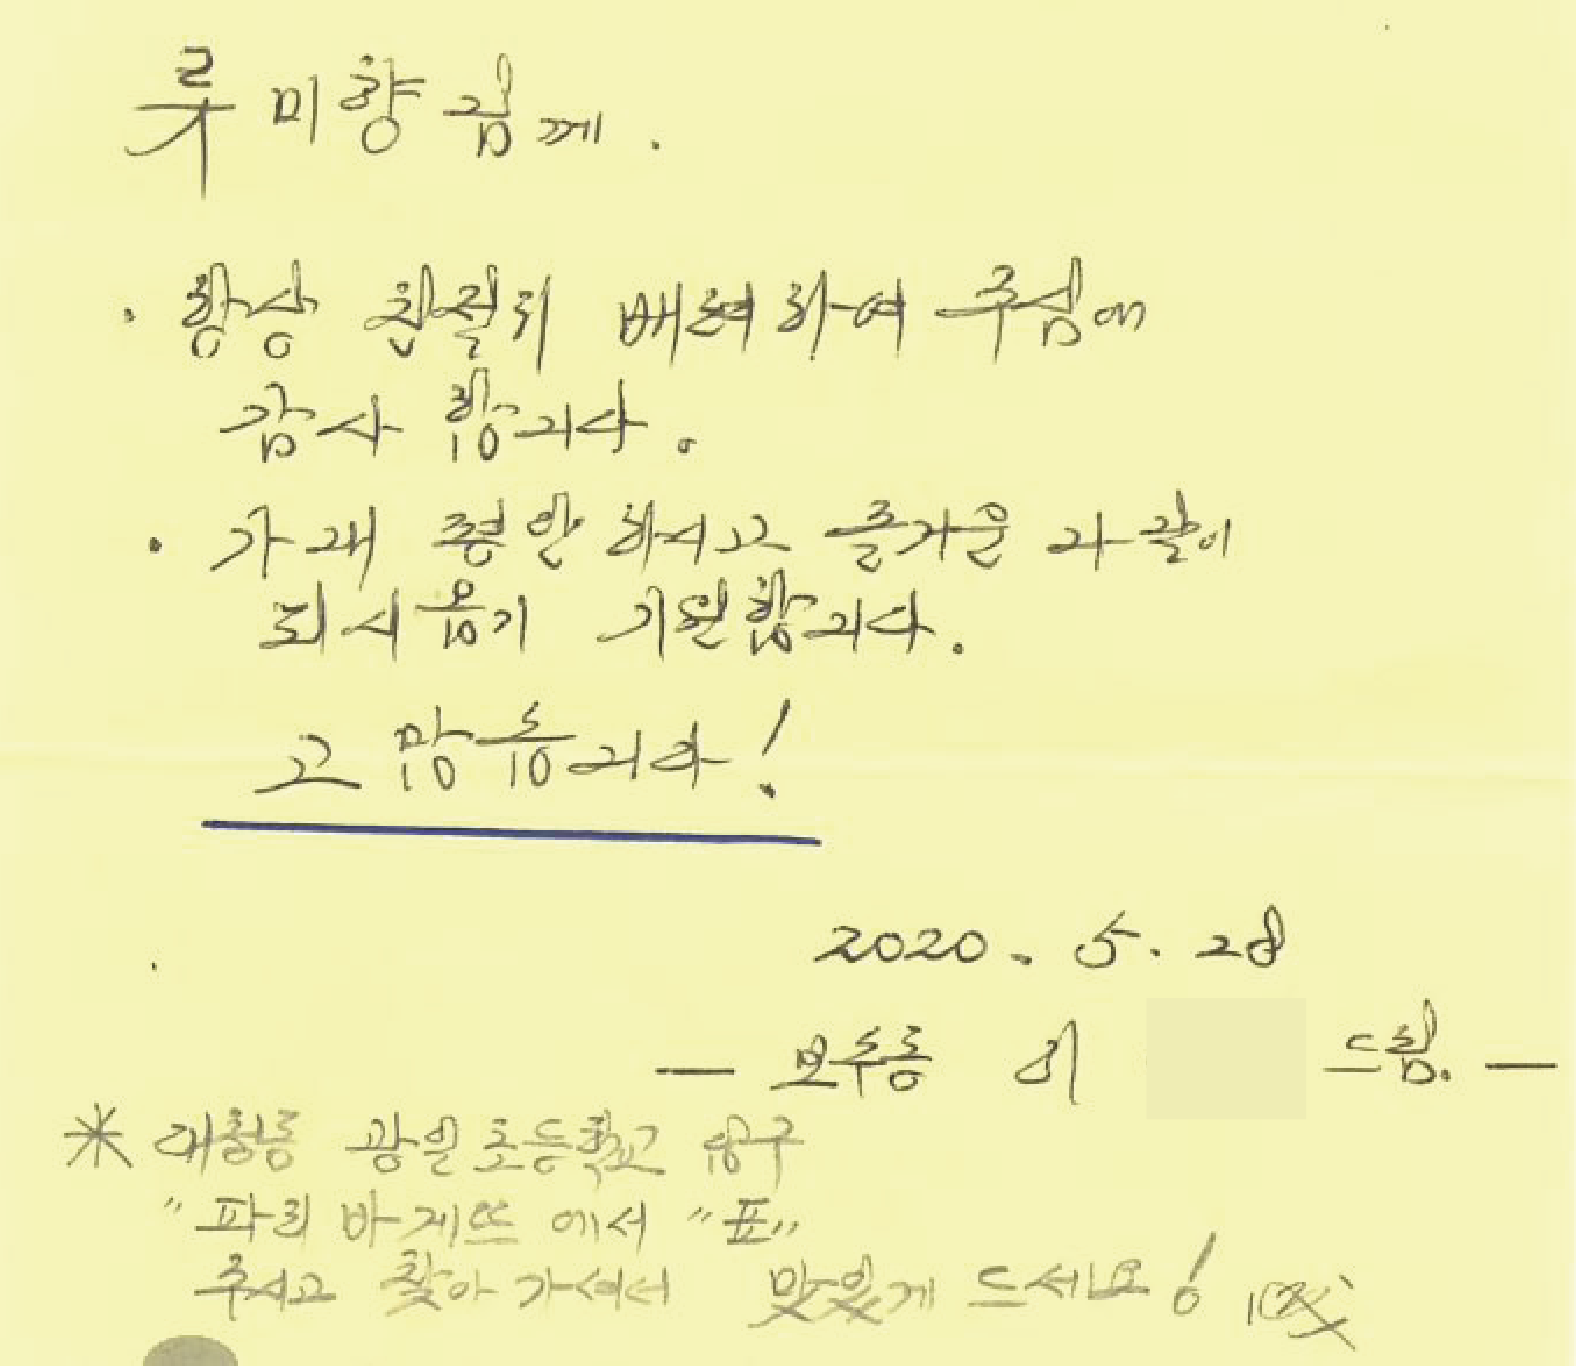 류미향님께.
· 항상 친절히 배려하여 주심에
감사 합니다.
· 가내 평안 하시고 즐거운 나날이
되시옵기 기원합니다.
고 맙습니다!
2020. 5. 28
— 보수동 이 드림. —
※ 대청동 광일초등학교 입구
"파리 바게뜨 에서 "표"
주시고 찾아 가셔서 맛있게 드세요!